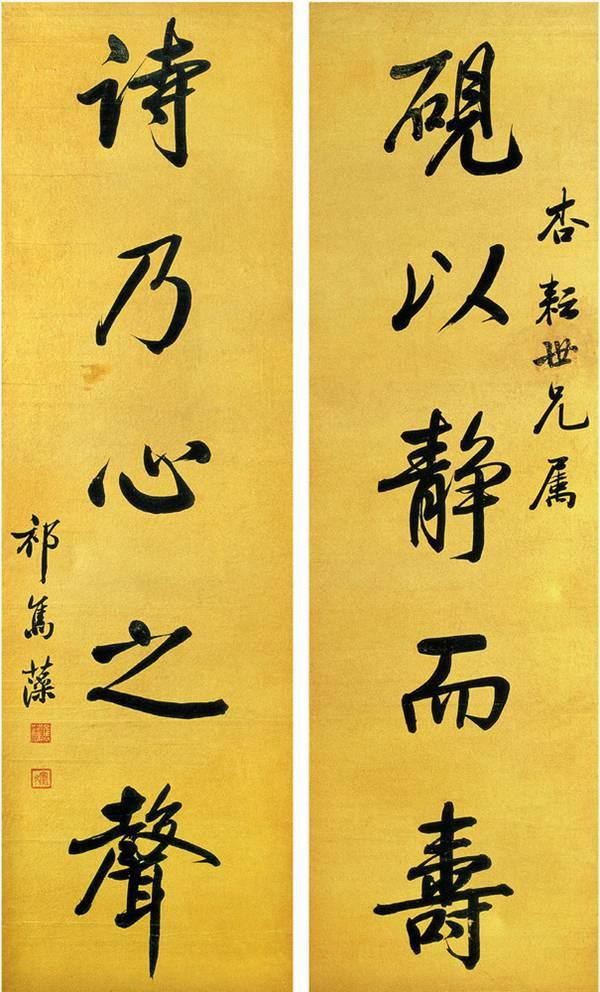 杏耘世兄属
硯以静而壽
詩乃心之聲
祁寯藻